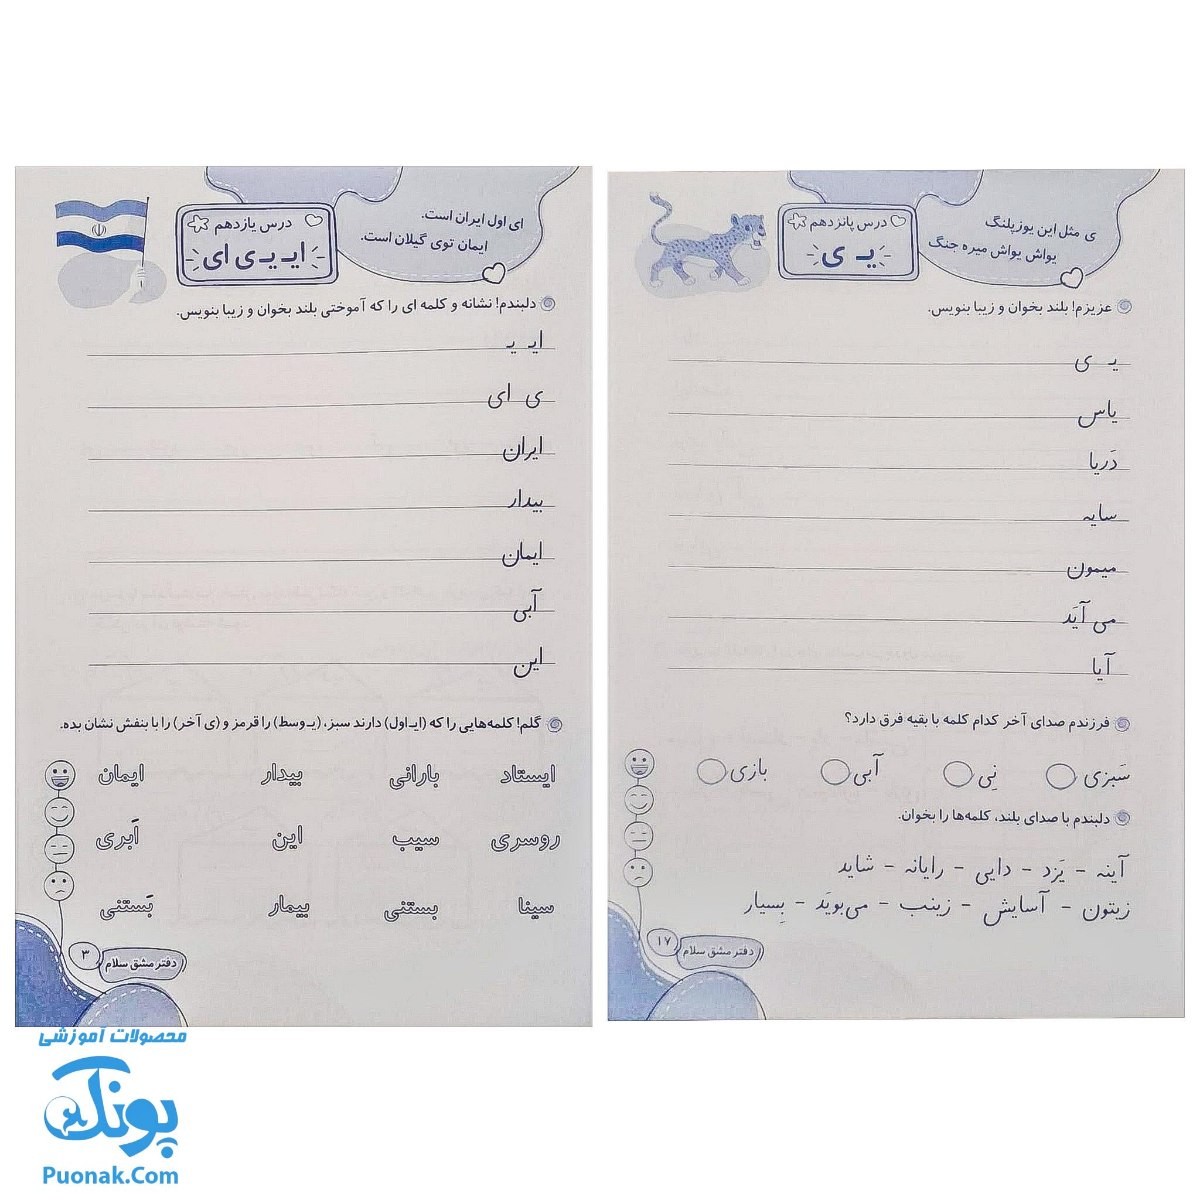 ی مثل این یوزپلنگ
یواش یواش میره جنگ
درس پانزدهم
یـ ی
عزیزم! بلند بخوان و زیبا بنویس.
یـ ی
یاس
دَریا
سایه
میمون
می آیَد
آیا
فرزندم صدای آخر کدام کلمه با بقیه فرق دارد؟
سَبزی نِی آبی بازی
دلبندم با صدای بلند، کلمه‌ها را بخوان.
آینه - یَزد - دایی - رایانه - شاید
زیتون - آسایش - زینب - می‌بویَد - بِسیار
دفتر مشق سلام
۱۷
ای اول ایران است.
ایمان توی گیلان است.
درس یازدهم
ایـ یـ ی ای
دلبندم! نشانه و کلمه ای را که آموختی بلند بخوان و زیبا بنویس.
ایـ یـ
ی ای
ایران
بیدار
ایمان
آبی
این
گلم! کلمه‌هایی را که (ایـ اول) دارند سبز، (یـ وسط) را قرمز و (ی آخر) را با بنفش نشان بده.
ایستاد بارانی بیدار ایمان
روسری سیب این اَبری
سینا بستنی بیمار بَستنی
دفتر مشق سلام
۳
محصولات آموزشی
پونک
Puonak.Com